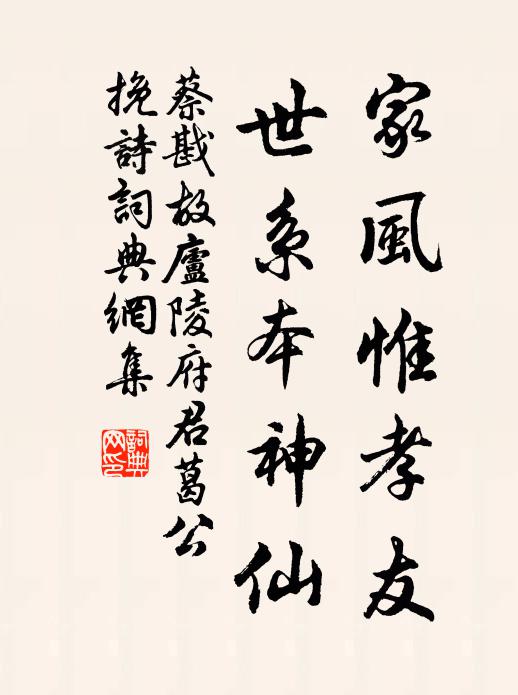 家風惟孝友
世系本神仙
蔡戡故廬陵府君葛公
挽詩詞典網集
詞典
网印